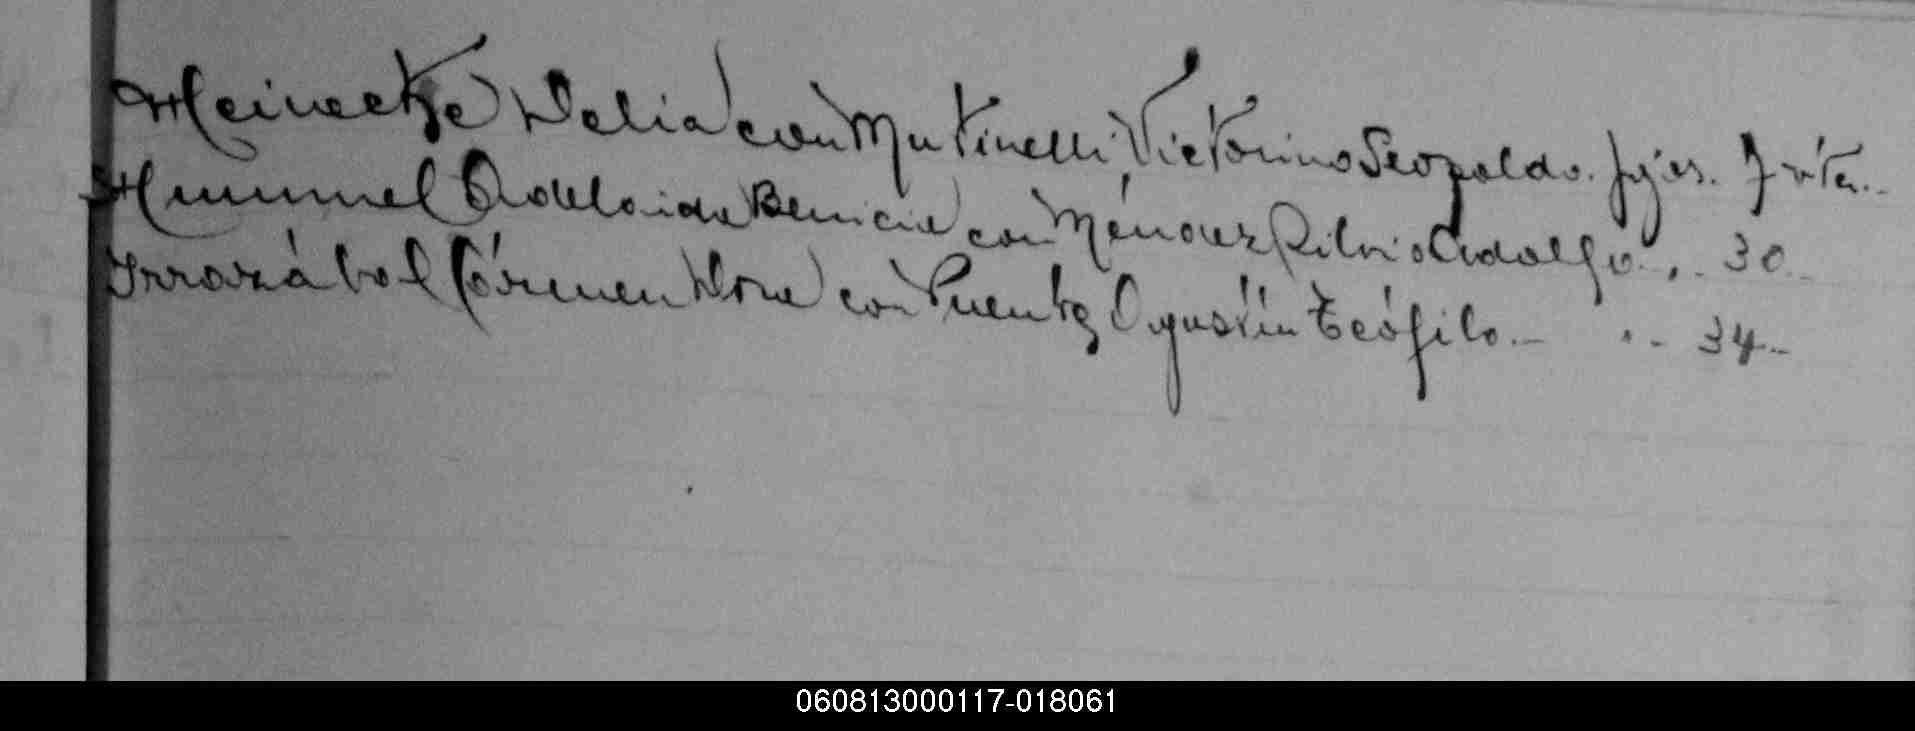 Heinecke Delia con Mutinelli Victorino Leopoldo. fojas. 7 vta..
Hummel Adelaida Benicia con Méndez Silvio Adolfo . . 30..
Irrazábal Cármen Nora con Puente Agustín Teófilo. — . . 34..
060813000117-018061